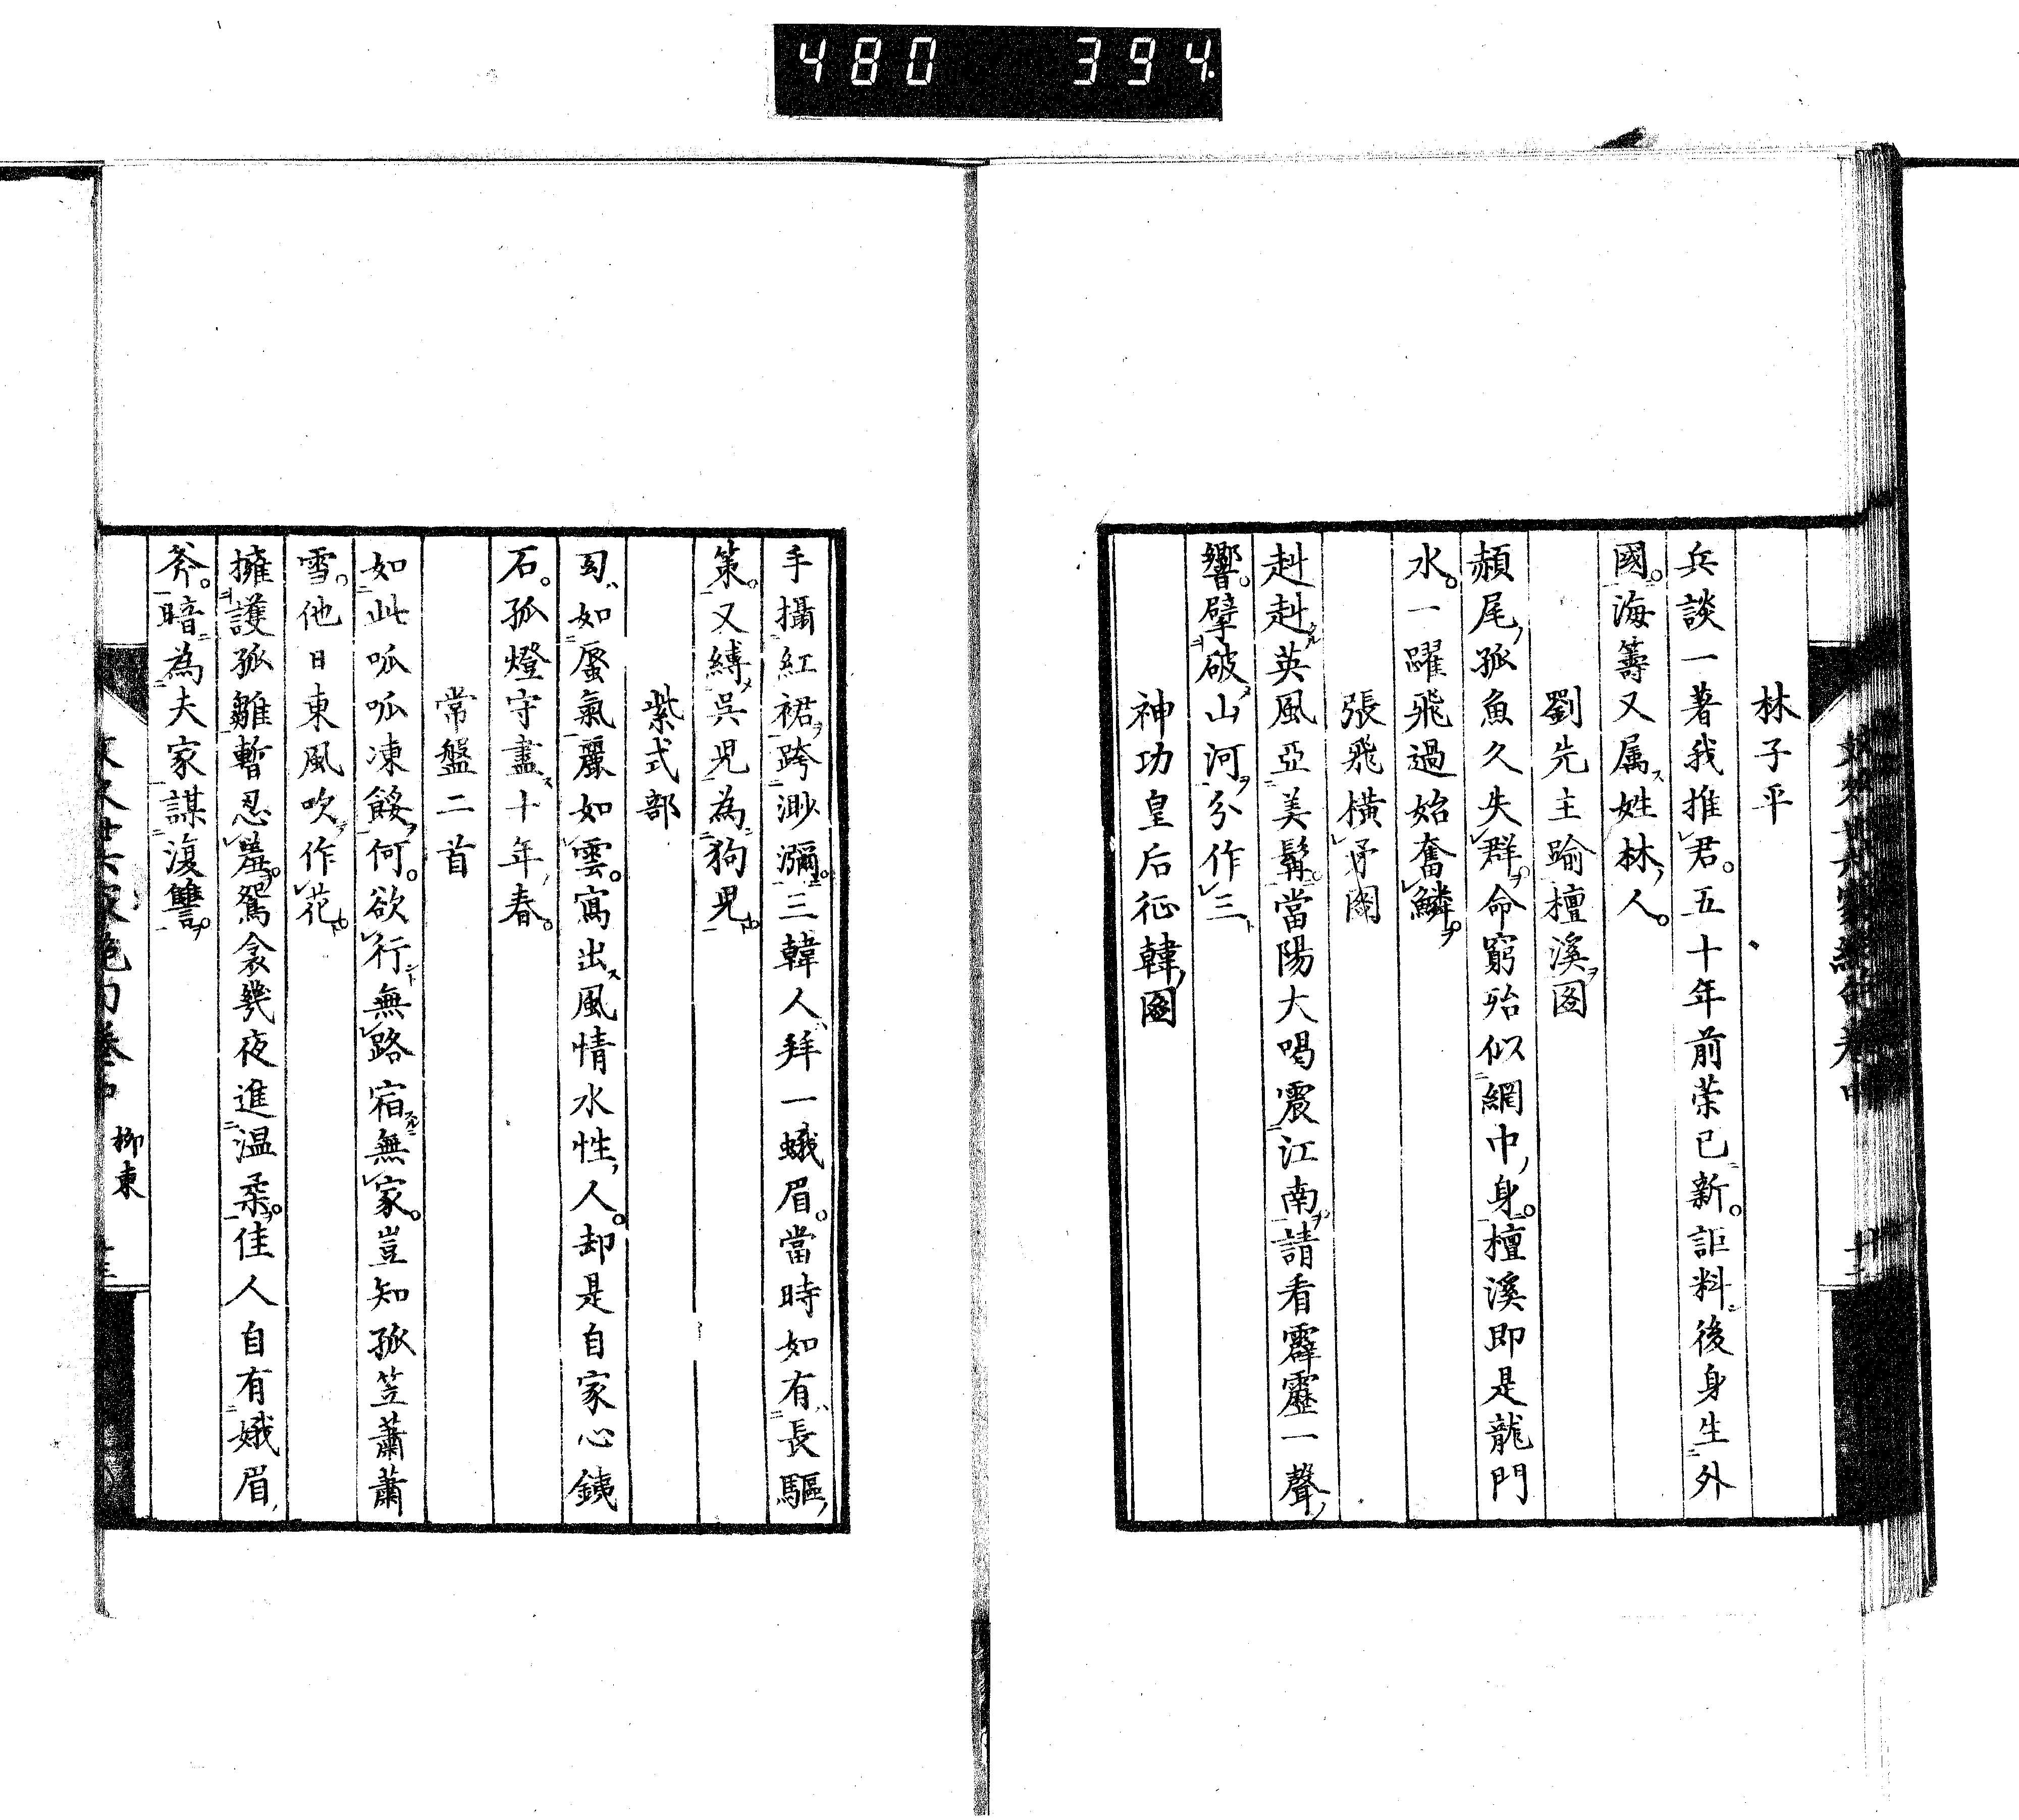 480 394
林子平
兵談一著我推君。五十年前蛍已新。詎料後身生外
國。海籌又属姓林人。
劉先主踰檀溪図
頳尾孤魚久失群。命窮殆似網中身。檀溪即是龍門
水。一躍飛過始奮鱗。
張飛横矛図
赳赳英風亞美髯。當陽大喝震江南。請看霹靂一聲
響。擘破山河分作三
神功皇后征韓図
手攝紅裙跨渺瀰。三韓人拜一蛾眉。當時如有長驅
策。又縛呉児為狗児
紫式部
匂如蘭氣麗如雲。寫出風情水性人。却是自家心鐵
石。孤燈守盡十年春。
常盤二首
如此呱呱凍餒何。欲行無路宿無家。豈知孤笠蕭蕭
雪。他日東風吹作花
擁護孤雛暫忍羞。鴛衾幾夜進温柔。佳人自有娥眉
斧。暗為夫家謀復讐。
柳東